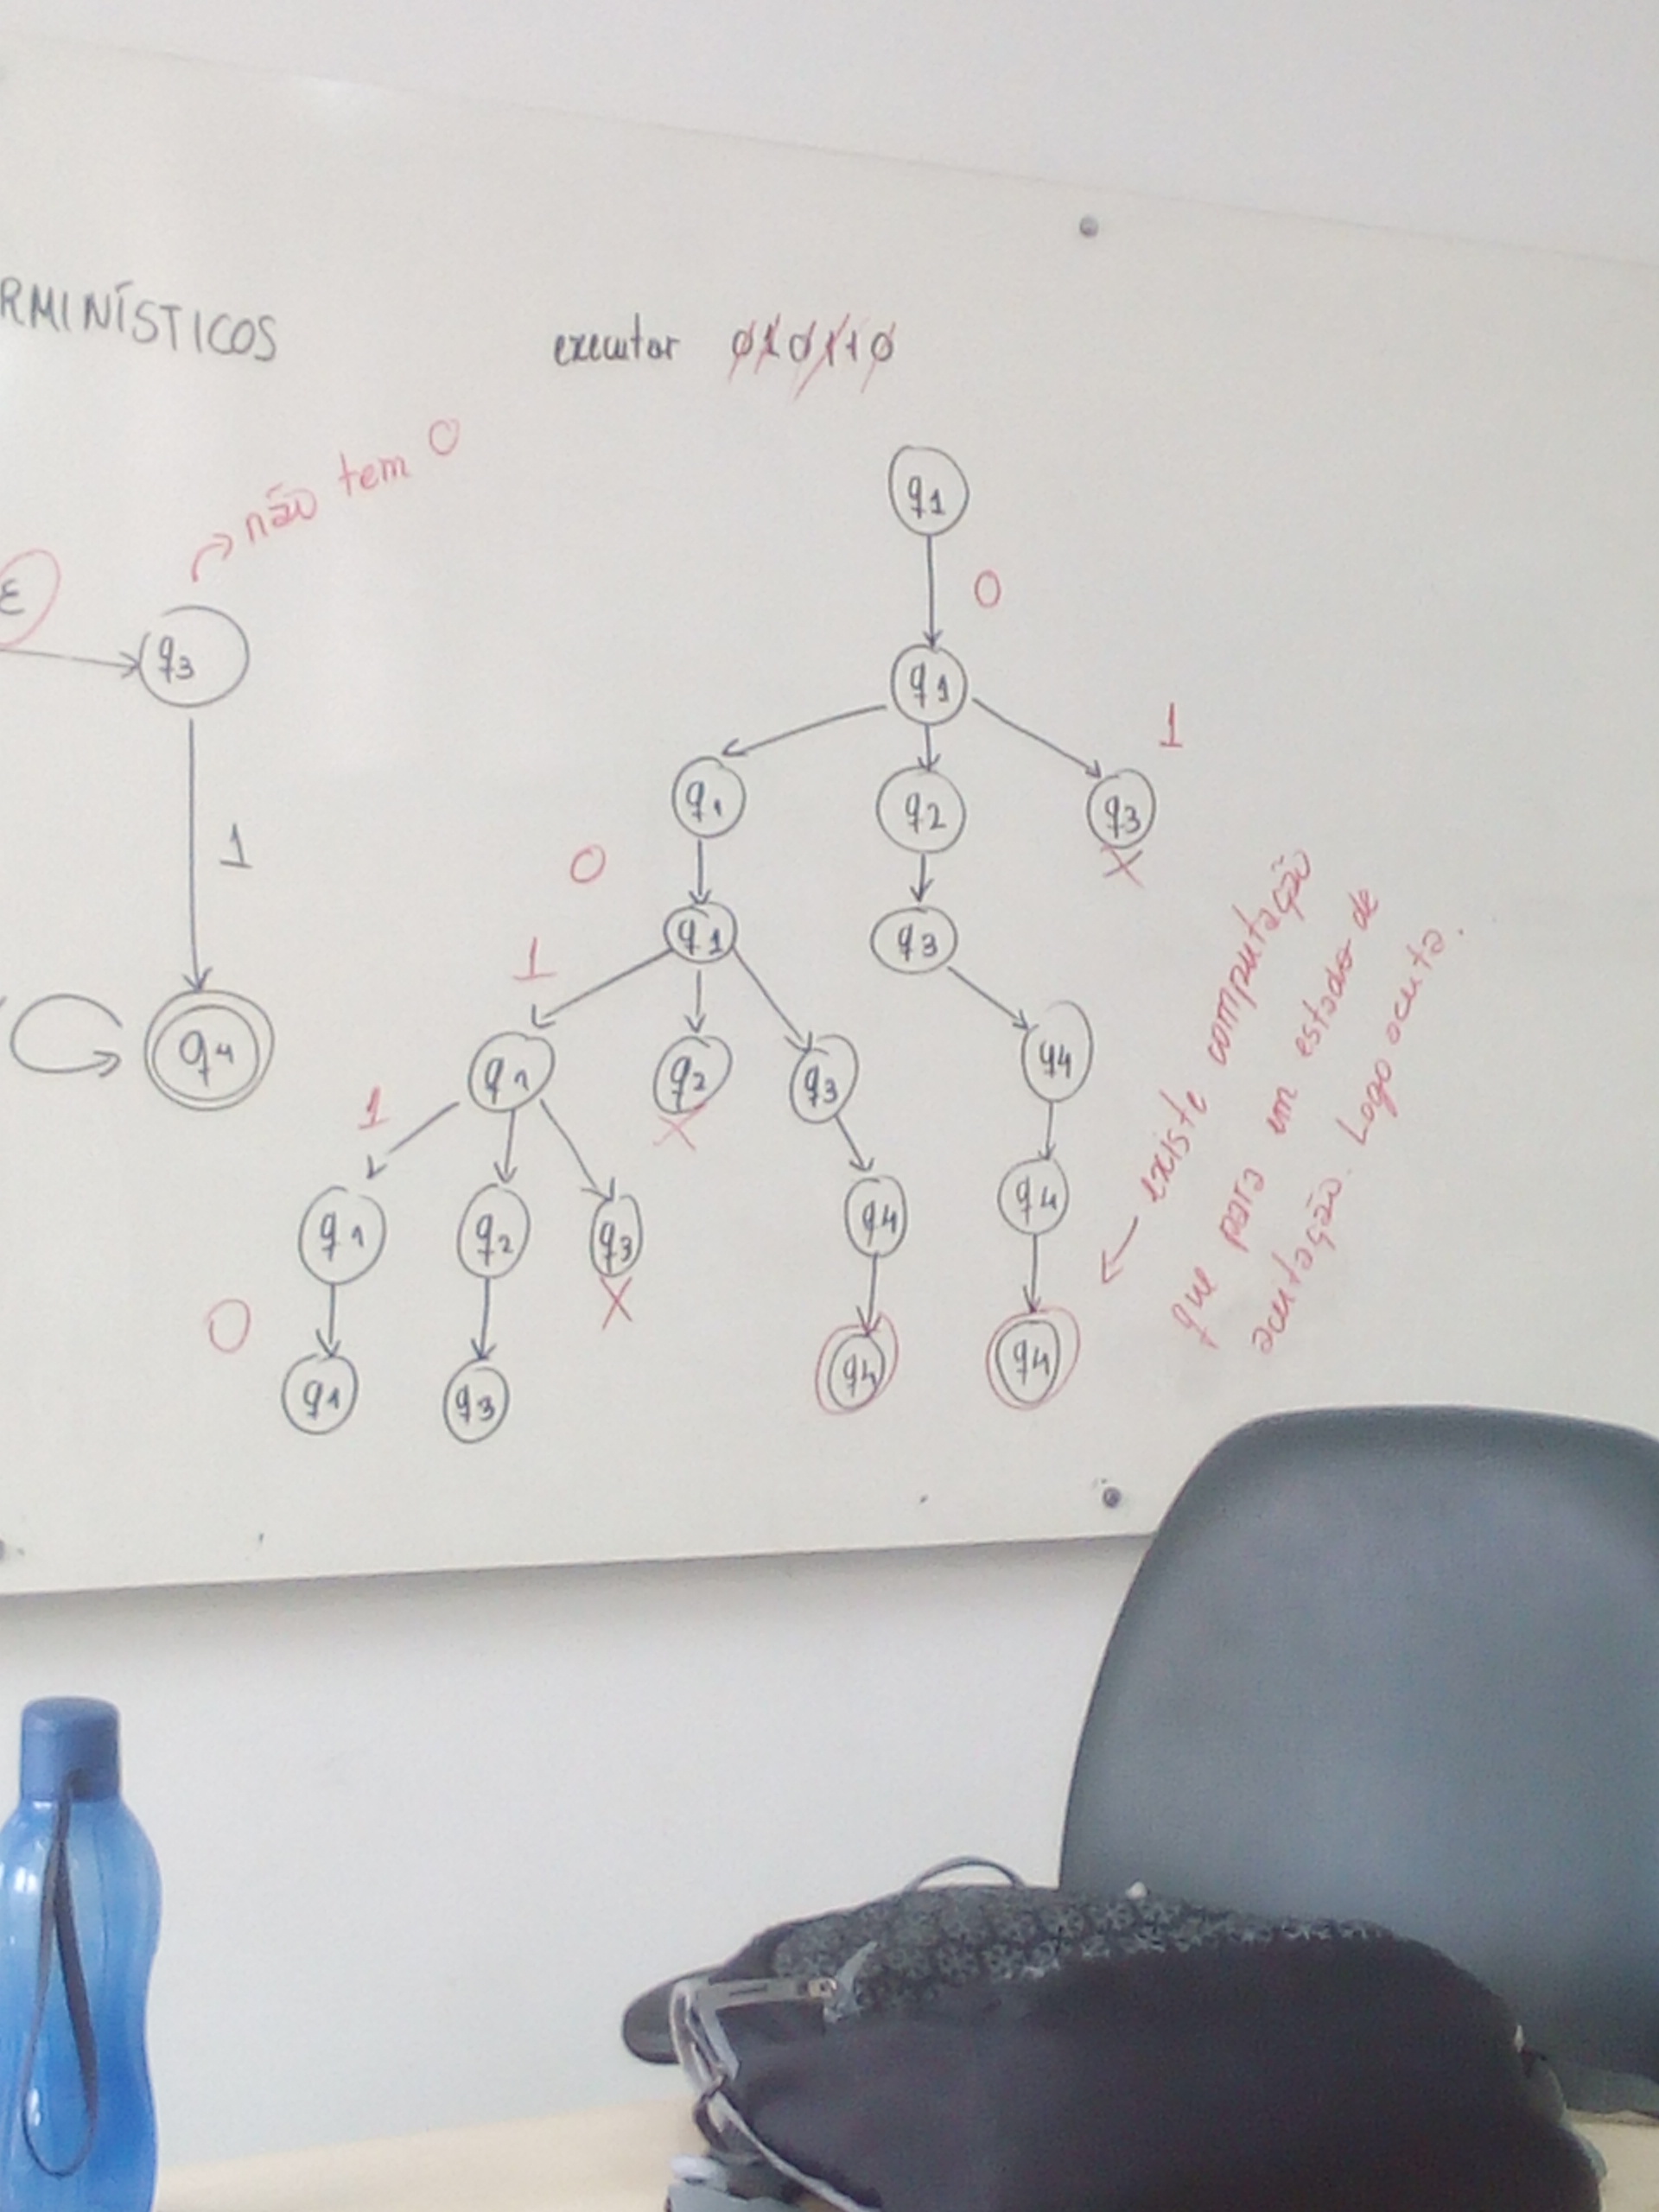 RMINÍSTICOS
executar 010110
não tem 0
ε
q1
0
q3
q1
1
q1
q2
q3
X
1
0
q1
q3
1
q4
q1
q2
X
q3
q4
1
q1
q2
q3
X
q4
q4
0
q1
q3
q4
q4
existe computação
que para em estado de
aceitação. Logo aceita.